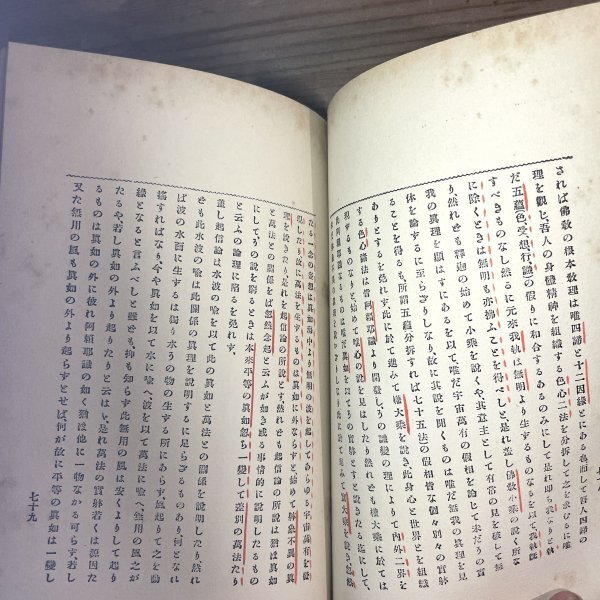 されば佛敎の根本敎理は唯四諦と十二因緣とにある而して吾人四諦の
理を觀じ、吾人の身體精神を組織する色心二法を分拆して之を求むるに唯
だ五蘊色(受想行識)の假りに和合するあるのみにして是れ我なりと執
すべきものなし然るに元來我執は無明より生ずるものなるを以て、我執既
に除くときは無明も亦拂ふことを得べしと、是れ蓋し佛敎小乘の說く所な
り、然れども釋迦の始めて小乘を說くや其意主として有常の見を破して無
我の眞理を顯はすにあるを以て、唯だ宇宙萬有の假相を論じて未だうの實
体を論ずるに至らざりしなり故に其說を聞くものは唯だ無我の眞理を見
ることを得るも、所謂五蘊分拆すれば七十五法の假相皆な個々別々の實躰
ありとするを免れず、此に於て進みて權大乘を說き、此身心と世界とを組織
する色心諸法は皆阿賴耶識より開發しうの識變の理によりて內外二界を
現ずるものなりと始めて唯心の說を見はしたり然れども權大乘に於ては
たる一念の妄想は眞如海中より無明の波を起してあらゆる宇宙萬有を發
現したり故に萬法を生ずるものは眞如に外ならずと、始めて躰象不異の眞
理を說きたり、是れ起信論の所說とす、然れども起信論の所說は猶ほ眞如
と萬法との關係をば忽然念起と云ふが如き或る事情的に說明したるもの
にしてうの說を窮るときは本來平等の眞如忽ち一變して差別の萬法たり
と云ふの論理に陷るを免れず、
蓋し起信論は水波の喩を以て此の眞如と萬法との關係を說明したり、然れ
ども此水波の喩は此關係の眞理を說明するに足らざるものあり何となれ
ば波の水面に生ずるは獨り水うの物の生ずる所にあらず風起りて之を動
搖すればなり、今や眞如を以て水に喩へ波を以て萬法に喩へ、無明の風之が
緣となると言ふべしと雖ども、抑も知らず此無明の風は安くよりして起り
たるや、若し眞如の外より起りたりと云はゞ、是れ萬法の實躰若くは原因た
るものは眞如の外に彼れ阿賴耶識の如く猶ほ他に一物なかる可らず、若し
又た無用の風も眞如の外より起らずとせば、何が故に平等の眞如は一變し
七十九